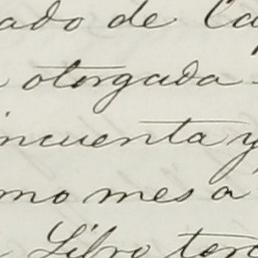 ado de Ca
otorgada
incuenta y
mo mes a
Libro terc